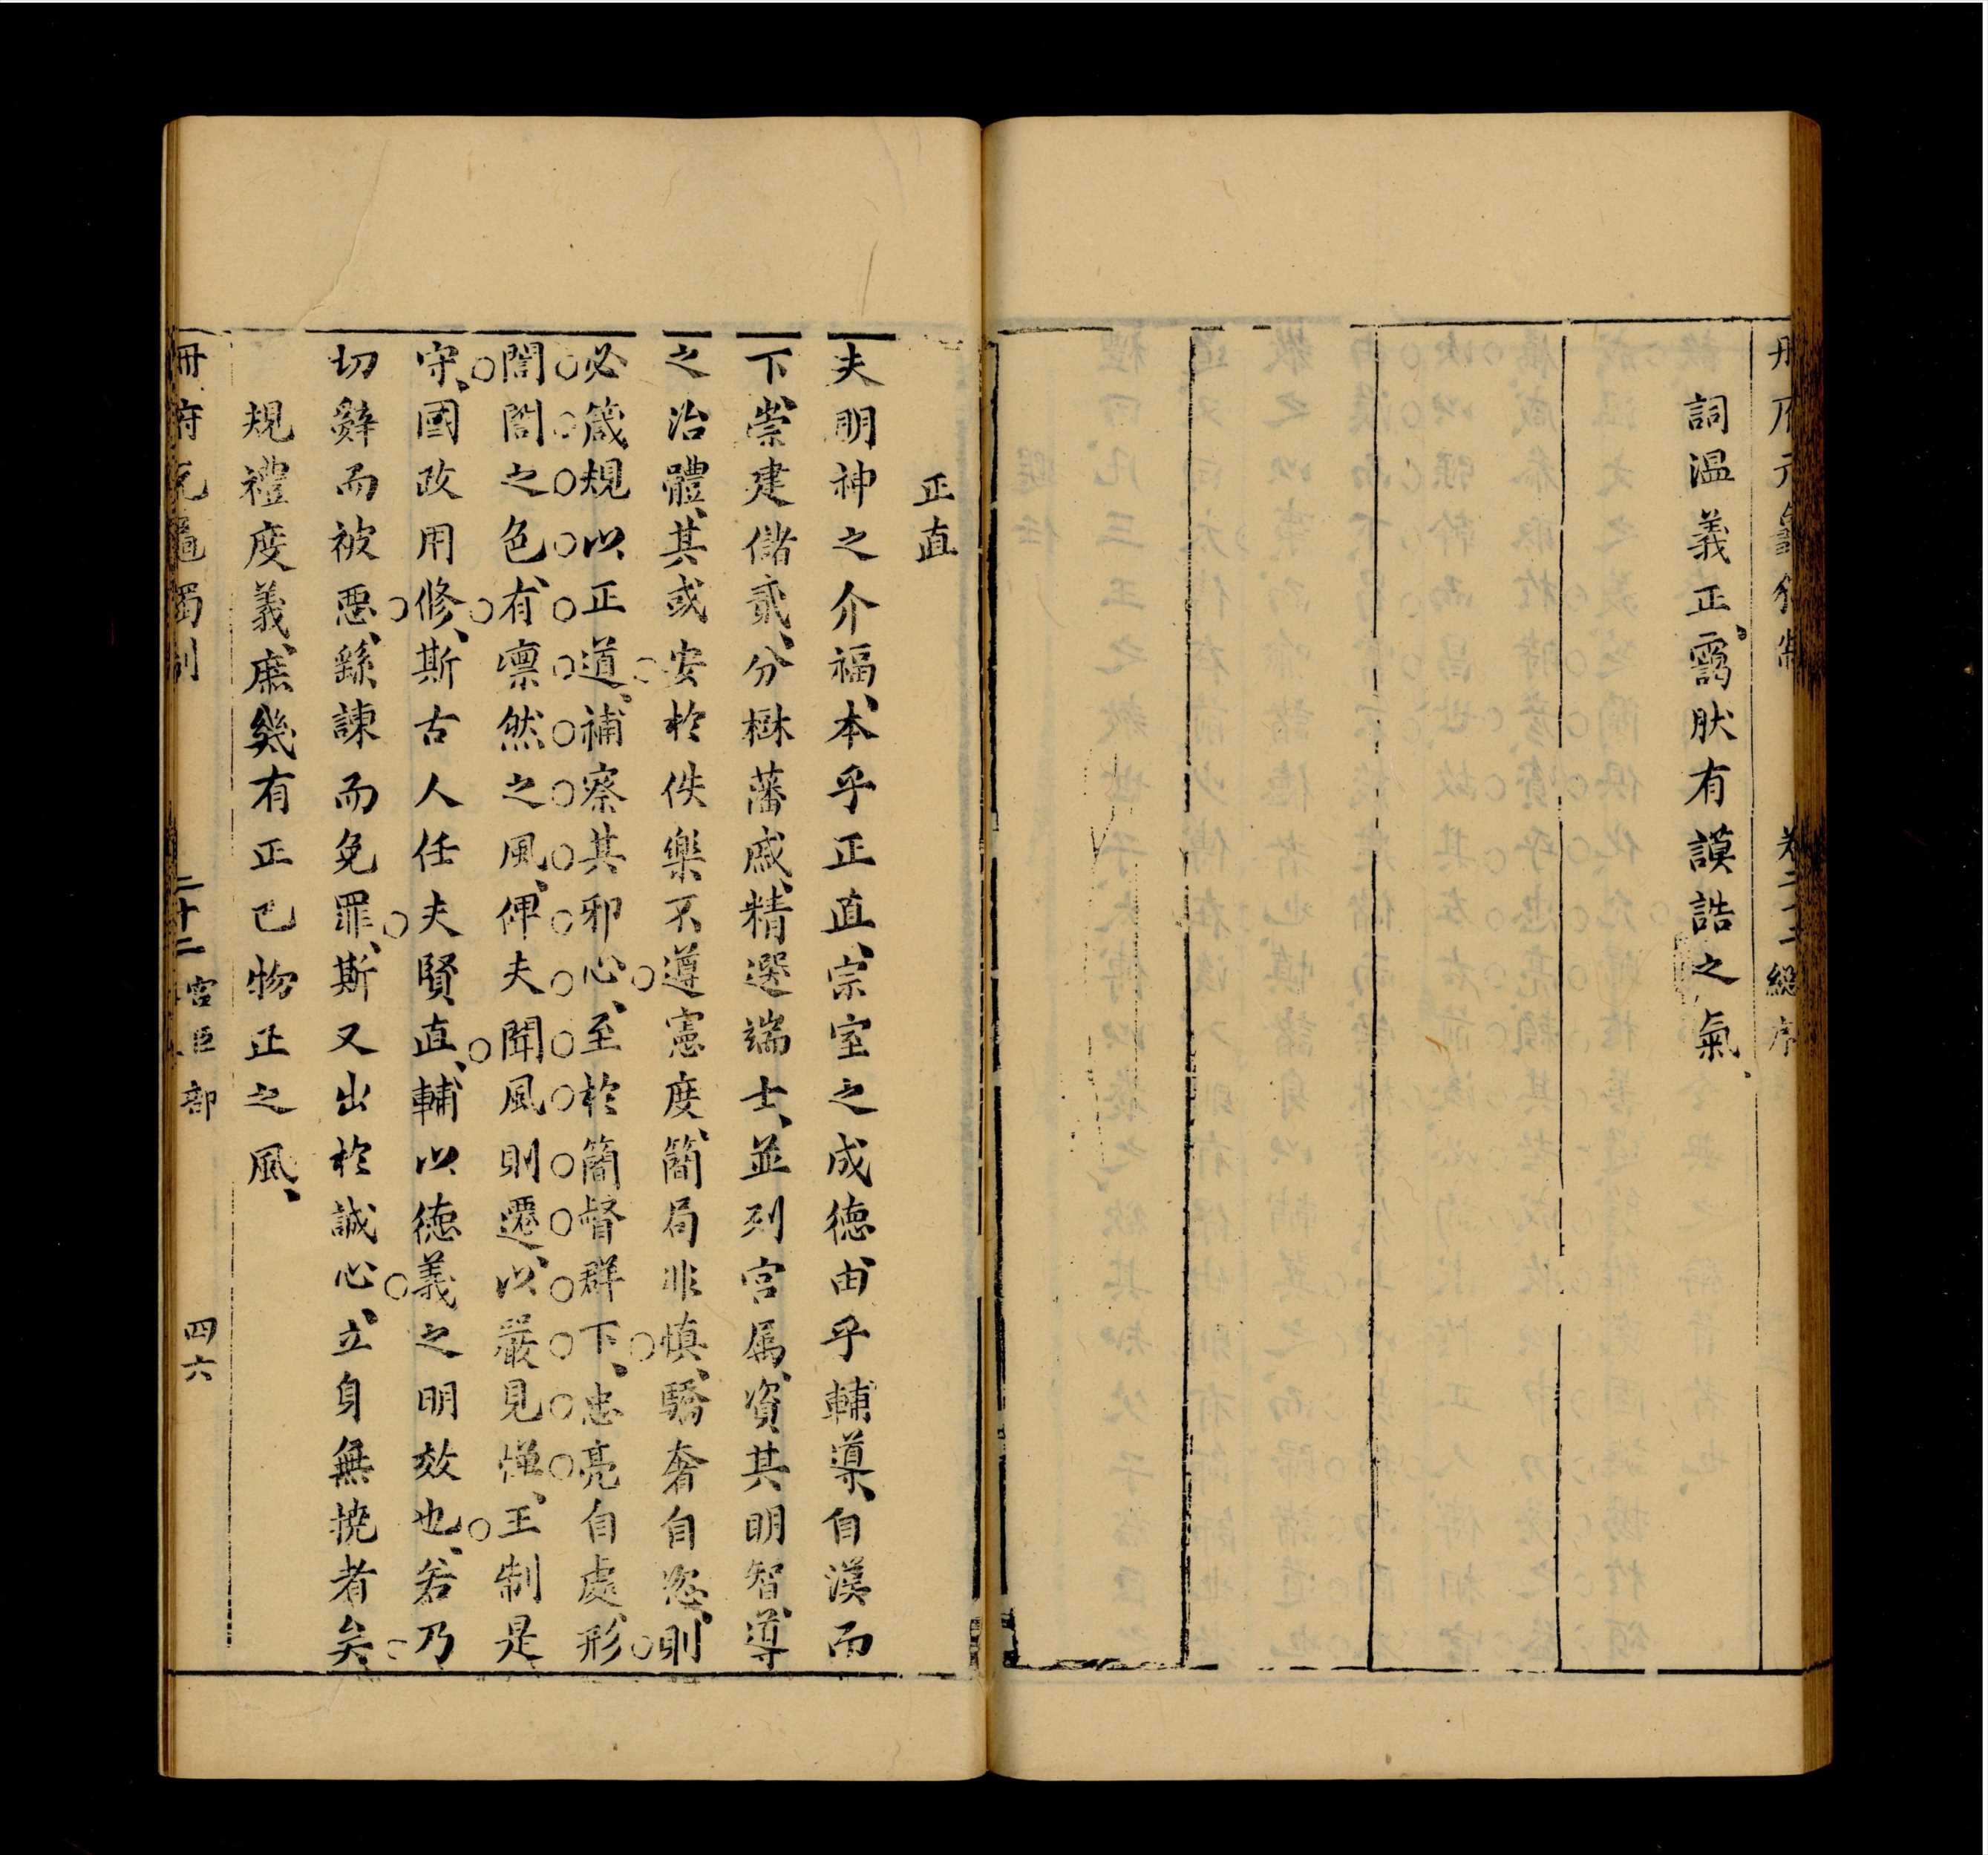 詞溫義正靄肰有謨誥之氣
正直
夫明神之介福本乎正直宗室之成德由乎輔導自漢而
下崇建儲貳分樹藩戚精選端士並列宮属資其明智導
之治體其或安於佚樂不遵憲度簡局非慎驕奢自恣則
必箴規以正道補察其邪心至於簡督群下忠亮自處形
誾誾之色有凛然之風俾夫聞風則遷以嚴見憚王制是
守國政用修斯古人任夫賢直輔以德義之明效也若乃
切辭而被惡繇諫而免罪斯又出於誠心立身無撓者矣
規禮度義庶幾有正已物正之風
冊府元龜獨制 二十二 宮臣部 四六